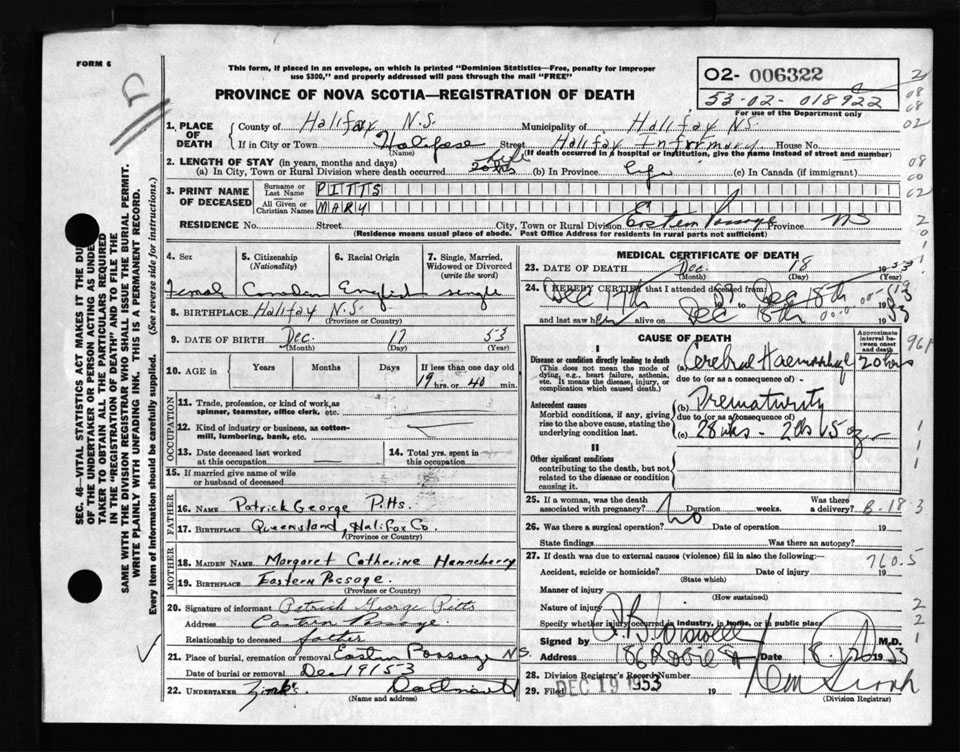 FORM 6
This form, if placed in an envelope, on which is printed "Dominion Statistics—Free, penalty for improper
use $300," and properly addressed will pass through the mail "FREE"
PROVINCE OF NOVA SCOTIA—REGISTRATION OF DEATH
02- 006322
53-02-018922
For use of the Department only
1. PLACE OF DEATH
County of Halifax N.S. Municipality of Halifax N.S.
If in City or Town Halifax Street Halifax Infirmary House No.
(Name) (If death occurred in a hospital or institution, give the name instead of street and number)
2. LENGTH OF STAY (in years, months and days)
(a) In City, Town or Rural Division where death occurred 20 hrs life (b) In Province life (c) In Canada (if immigrant)
3. PRINT NAME OF DECEASED
Surname or Last Name PITTS
All Given or Christian Names MARY
RESIDENCE No. Street City, Town or Rural Division Eastern Passage Province NS
(Residence means usual place of abode. Post Office Address for residents in rural parts not sufficient)
4. Sex 5. Citizenship (Nationality) 6. Racial Origin 7. Single, Married, Widowed or Divorced (write the word)
Female Canadian English single
8. BIRTHPLACE Halifax N.S.
(Province or Country)
9. DATE OF BIRTH Dec. 17 53
(Month) (Day) (Year)
10. AGE in Years Months Days If less than one day old
19 hrs. or 40 min.
OCCUPATION
11. Trade, profession, or kind of work, as
spinner, teamster, office clerk, etc.
12. Kind of industry or business, as cotton-
mill, lumbering, bank, etc.
13. Date deceased last worked
at this occupation
14. Total yrs. spent in
this occupation
15. If married give name of wife
or husband of deceased
FATHER
16. NAME Patrick George Pitts
17. BIRTHPLACE Queensland, Halifax Co.
(Province or Country)
MOTHER
18. MAIDEN NAME Margaret Catherine Henneberry
19. BIRTHPLACE Eastern Passage.
(Province or Country)
20. Signature of informant Patrick George Pitts
Address Eastern Passage.
Relationship to deceased father
21. Place of burial, cremation or removal Eastern Passage N.S.
Date of burial or removal Dec 19 1953
22. UNDERTAKER Zinks. Dartmouth
(Name and address)
MEDICAL CERTIFICATE OF DEATH
23. DATE OF DEATH Dec. 18 1953
(Month) (Day) (Year)
24. I HEREBY CERTIFY that I attended deceased from:
Dec 17th 53 Dec 18th 1953
and last saw her alive on Dec 18th 1953
CAUSE OF DEATH
Approximate interval between onset and death
I
Disease or condition directly leading to death
(This does not mean the mode of
dying, e.g., heart failure, asthenia,
etc. It means the disease, injury, or
complication which caused death.)
(a) Cerebral Haemorrhage 20 hrs
due to (or as a consequence of)
Antecedent causes
Morbid conditions, if any, giving
rise to the above cause, stating the
underlying condition last.
(b) Prematurity
due to (or as a consequence of)
(c) 28 wks - 2 lbs 15 oz
II
Other significant conditions
contributing to the death, but not
related to the disease or condition
causing it.
25. If a woman, was the death
associated with pregnancy? No Duration weeks. Was there a delivery?
B-18-3
26. Was there a surgical operation? Date of operation 19
State findings Was there an autopsy?
27. If death was due to external causes (violence) fill in also the following:—
760.5
Accident, suicide or homicide? Date of injury 19
(State which)
Manner of injury
(How sustained)
Nature of injury
Specify whether injury occurred in industry, in home, or in public place
Signed by M.D.
Address Date 18 1953
28. Division Registrar's Record Number
29. Filed DEC 19 1953 19
(Division Registrar)
SEC. 46—VITAL STATISTICS ACT MAKES IT THE DU
OF THE UNDERTAKER OR PERSON ACTING AS UNDE
TAKER TO OBTAIN ALL THE PARTICULARS REQUIRED
IN THE "REGISTRATION OF DEATH" AND TO FILE THE
SAME WITH THE DIVISION REGISTRAR WHO SHALL ISSUE THE BURIAL PERMIT.
WRITE PLAINLY WITH UNFADING INK. THIS IS A PERMANENT RECORD.
Every item of information should be carefully supplied. (See reverse side for instructions.)